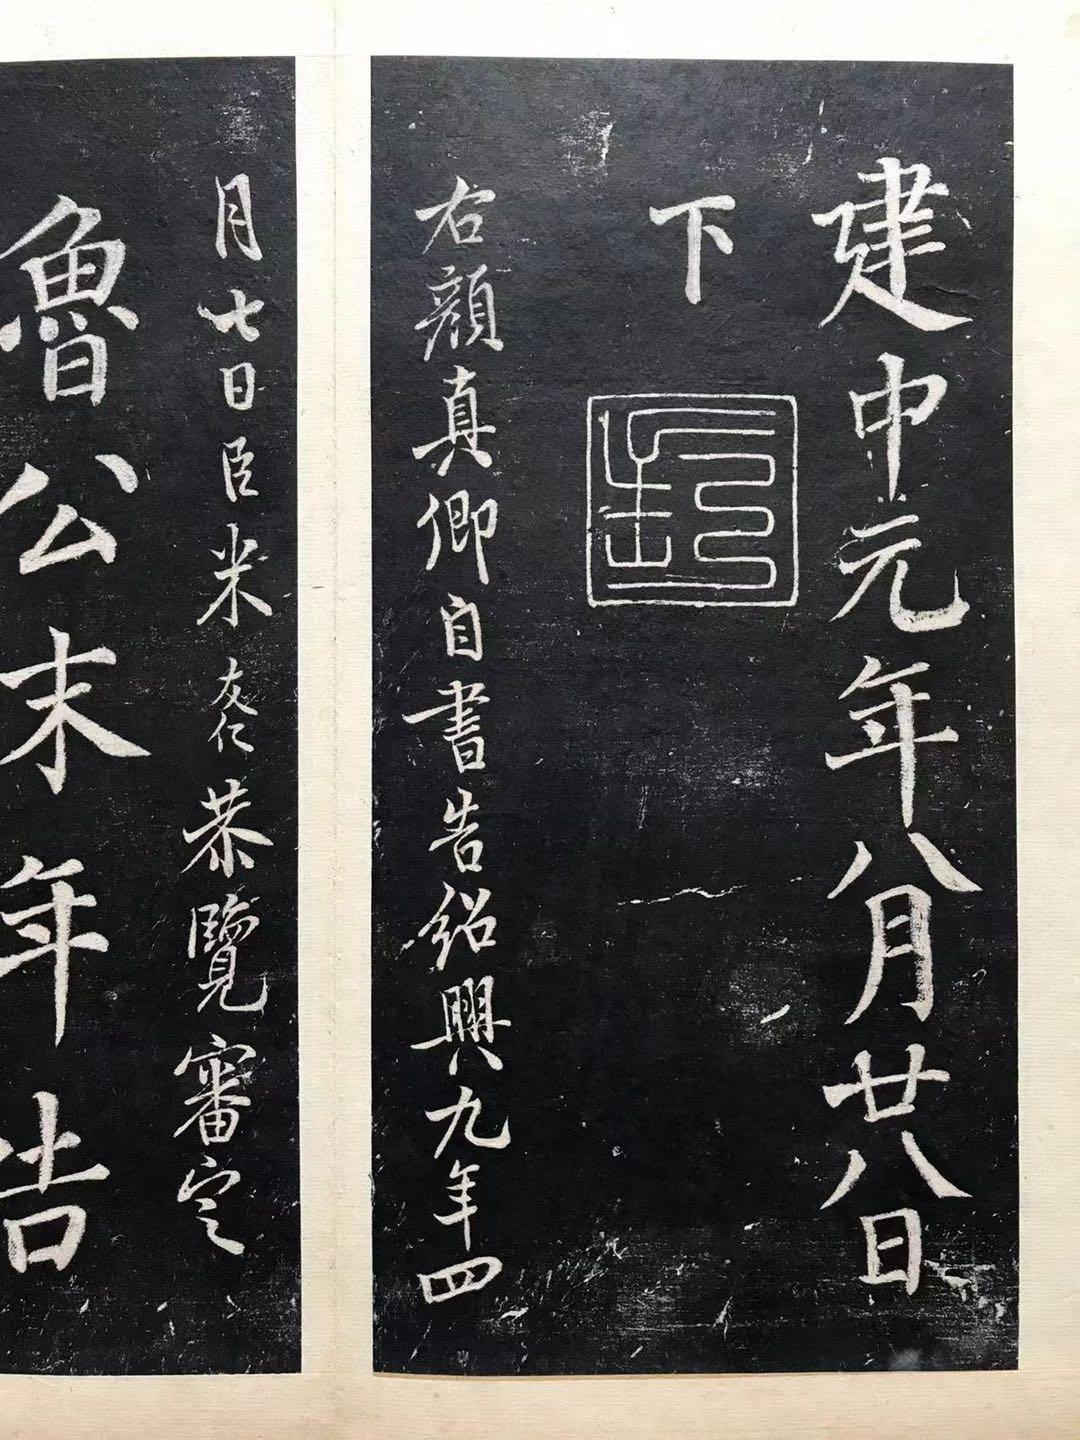 建中元年八月廿八日
下
右顔真卿自書告紹興九年四
月七日臣米友仁恭覽審定
魯公末年告